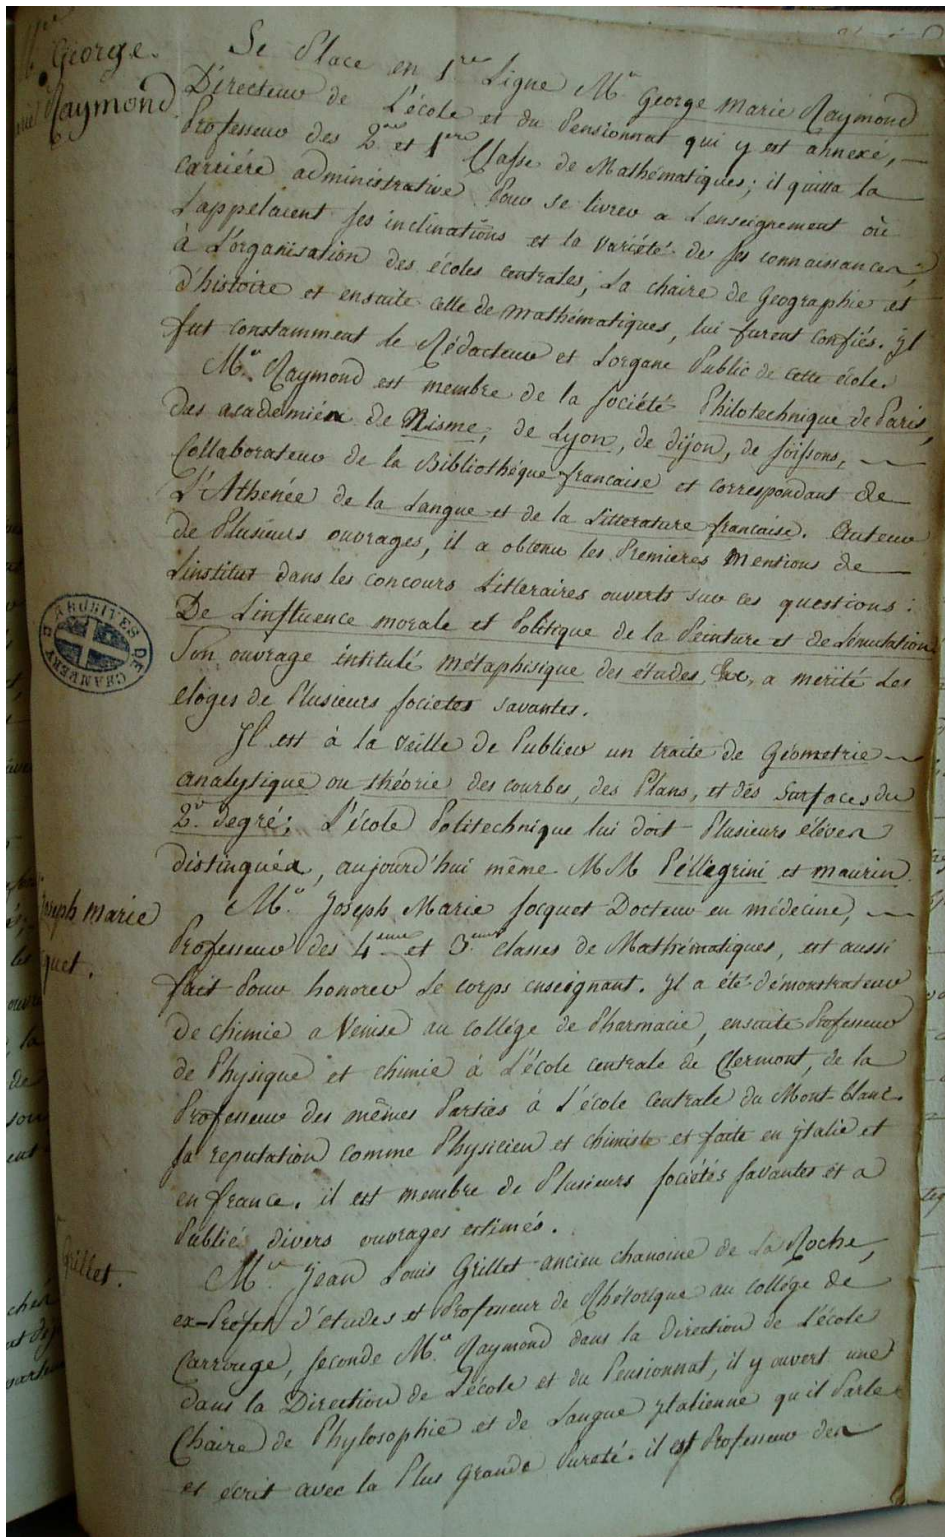 George
Raymond
Se Place en 1re Ligne Mr George Marie Raymond
Directeur de L'école et du Pensionnat qui y est annexé,
Professeur des 2me et 1ere Classe de Mathématiques; il quitta la
Carriére administrative Pour se livrer a L'enseignement où
L'appelaient ses inclinations et la variété de ses connaissances,
à L'organisation des écoles centrales, La chaire de Geographie et
d'histoire et ensuite celle de mathématiques, lui furent confiés. Il
fut constamment le Rédacteur et Lorgane Public de cette école.
Mr Raymond est membre de la société Philotechnique de Paris,
des academies de Nisme, de Lyon, de dijon, de soissons,
Collaborateur de la Bibliothéque francaise et correspondant de
L'Athenée de la Langue et de la Litterature francaise. Auteur
de Plusieurs ouvrages, il a obtenu les Premieres mentions de
Linstitut dans les concours Litteraires ouverts sur ces questions:
De Linfluence morale et Politique de la Peinture et de Lemulation
Son ouvrage intitulé métaphisique des études, &c, a mérité Les
eloges de Plusieurs societes savantes.
Il est à la veille de Publier un traite de Géometrie
analytique ou théorie des courbes, des Plans, et des surfaces du
2e degré; L'école Politechnique lui doit Plusieurs éléves
distingués, aujourd'hui même MM Péllegrini et maurin.
Joseph marie
quet.
Mr Joseph Marie Jocquet Docteur en médecine,
Professeur des 4eme et 3eme classes de Mathématiques, est aussi
fait Pour honorer Le corps enseignant. Il a été démonstrateur
de chimie a Venise au collége de Pharmacie, ensuite Professeur
de Physique et chimie à L'école centrale de Clermont, de la
Professeur des mêmes Parties à L'école Centrale du Mont-blanc.
sa reputation comme Physicien et chimiste et faite en Italie et
en france. il est membre de Plusieurs sociétés savantes et a
Publié divers ouvrages estimés.
Grillet.
Mr Jean Louis Grillet ancien chanoine de La Roche,
ex-Préfet d'études et Professeur de Rhétorique au collége de
Carrouge, seconde Mr Raymond dans la Direction de L'école
dans la Direction de L'école et du Pensionnat, il y ouvert une
Chaire de Phylosophie et de Langue Italienne qu'il Parle
et écrit avec la Plus Grande Pureté. il est Professeur des
ARCHIVES DE CHAMBERY